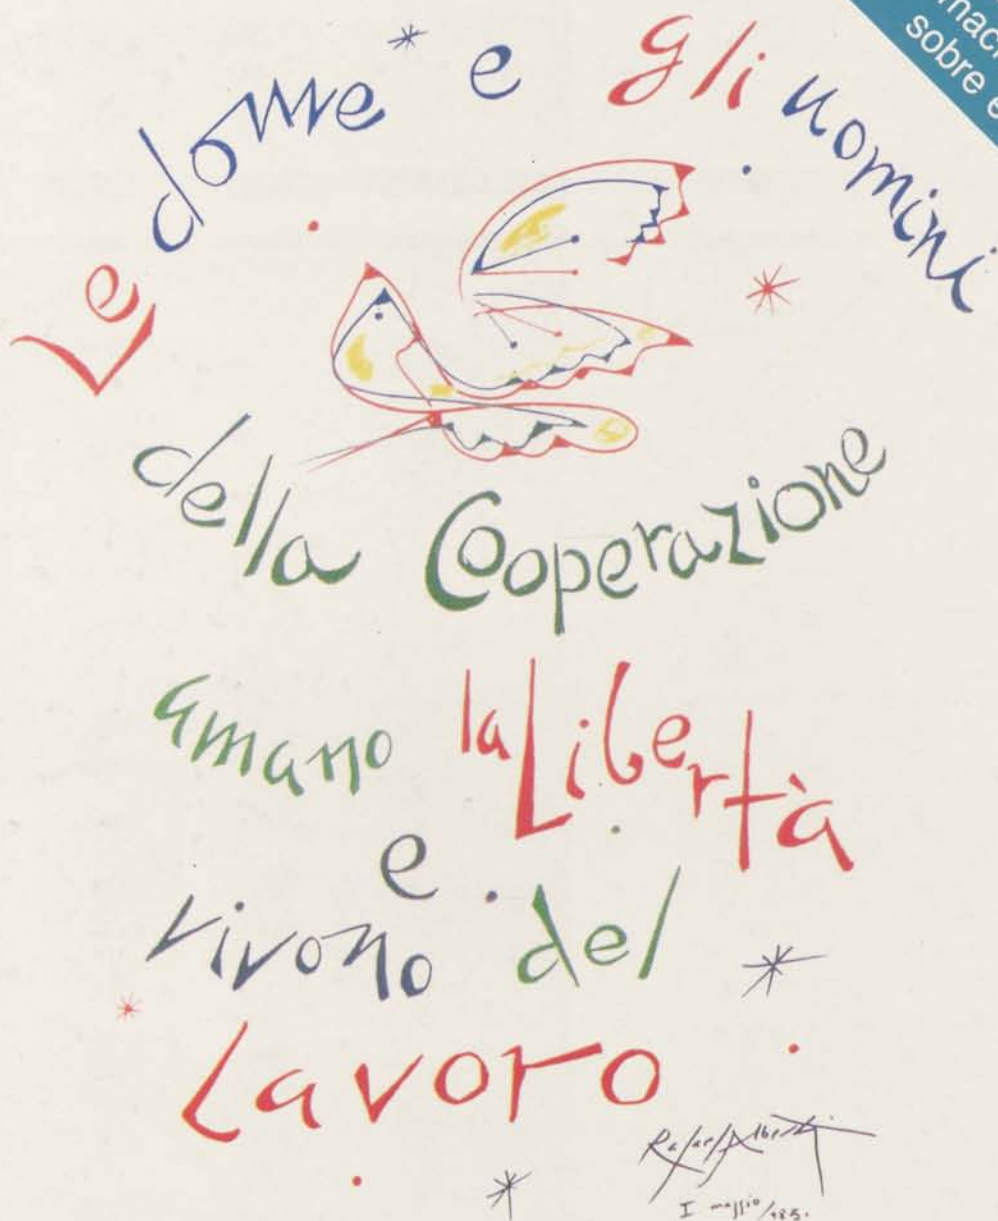 Le donne e gli uomini
della Cooperazione
amano la Libertà
e
vivono del
Lavoro
Rafael Alberti
I maggio
sobre